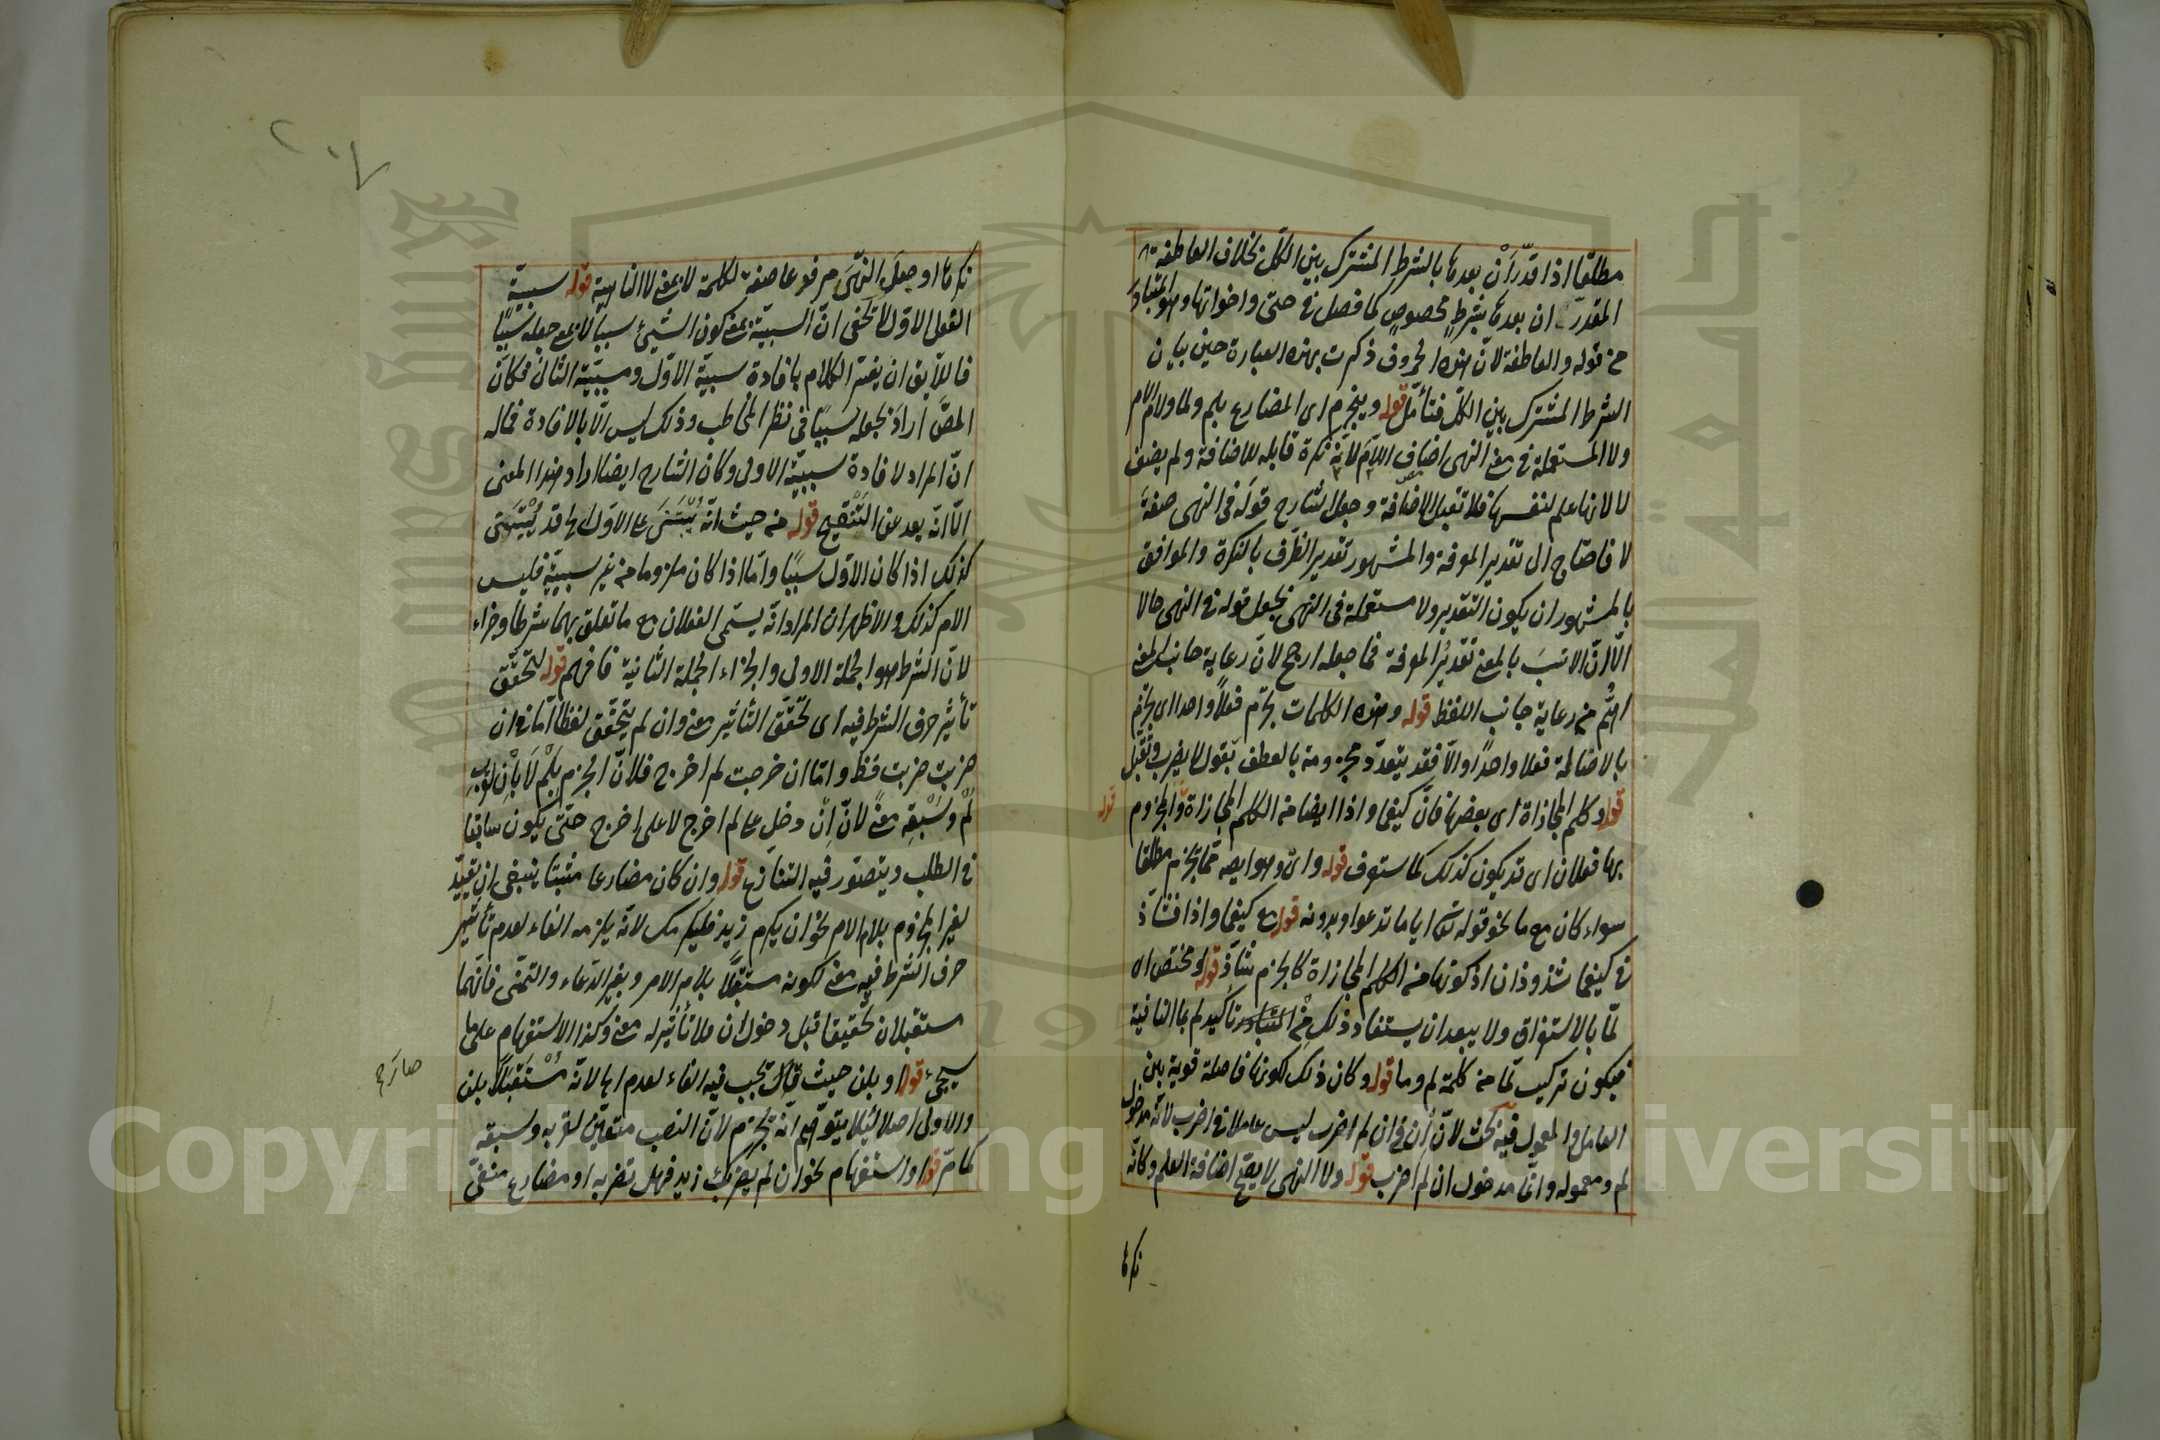 مطلقا اذا قدّر أن بعدها بالشرط المشترك بين الكلّ بخلاف العاطفة
المقدرّ ان بعدها بشرط مخصوص كما فصل فى حتى واخواتها وهو المتبادر
من قوله والعاطفة لانّ هذه الحروف ذكرت بهذه العبارة حين بيان
الشرط المشترك بين الكلّ فتأمل قوله وينجزم اى المضارع بلم ولما ولام الامر
ولا المستعملة فى معنى النهى اضاف اللام لانّه نكرة قابلة للاضافة ولم يضف
لا لانها علم لنفسها فلا تقبل الاضافة وجعل الشارح قوله فى النهى صفة
لا فاحتاج الى تقدير المعرفة والمشهور تقدير الظرف بالنكرة والموافق
بالمشهور ان يكون التقدير ولا مستعملة فى النهى بجعل قوله فى النهى حالا
الّا انّ الانسب بالمعنى تقدير المعرفة فما جعله ارجح لانّ رعاية جانب المعنى
اهمّ من رعاية جانب اللفظ قوله وهذه الكلمات تجزم فعلاً واحدا اى تجزم
بالاصالة فعلا واحداً والّا فقد يتعدّد مجزومه بالعطف تقول لا يضرب ويقتل
قوله وكلم المجازاة اى بعضها فانّ كيفما واذا ايضا من الكلم المجازاة والمجزوم
بها فعلان اى قد يكون كذلك كما ستعرف قوله واىّ وهو ايضا مما تجزم مطلقا
سواء كان مع ما نحو قوله تعالى ايا ما تدعوا وبدونه قوله مع كيفما واذا فشاذ
فى كيفما شذوذان اذ كونها من الكلم المجازاة كالجزم شاذ قوله ومختص اى
لمّا بالاستغراق ولا يبعد ان يستفاد ذلك من تأكيد لم بما النافية
فيكون تركيب لمّا من كلمة لم وما قوله وكان ذلك لكونها فاصلة قوية بين
العامل والمعمول فيه بحث لانّ إن فى ان لم اضرب ليس عاملا فى اضرب لانّه مدخول
لم ومعموله وانما مدخول ان لم اضرب قوله ولا النهى لا يصح اضافة العلم وكانّه
نكرها
قوله
نكرها او جعل النّهى مرفوعا صفة لكلمة لا بمعنى لا الناهية قوله سببيّة
الفعل الاوّل لا يخفى انّ السببيّة بمعنى كون الشيئ سببا لا بمعنى جعله سببًا
فاللّايق ان يفسر الكلام بافادة سببية الاوّل ومسبّبيّة الثانى فكانّ
المصّ اراد بجعله سببًا فى نظر المخاطب وذلك ليس الّا بالافادة فماله
انّ المراد لافادة سببيّة الاولى وكان الشارح ايضا اراد هذا المعنى
الّا انّه بعد عن التّنقيح قوله من حيث انّه يُبْتَنى على الاوّل اى قد يُبْتَنى
كذلك اذا كان الاوّل سببًا وامّا اذا كان ملزوما من غير سببيّة فليس
الامر كذلك والاظهر ان المراد انّه يسمّى الفعلان مع ما تعلق بهما شرطا وجزاء
لانّ الشرط هو الجملة الاولى والجزاء الجملة الثانية فافهم قوله لتحقّق
تأثير حرف الشرط فيه اى لتحقّق التّأثير معنى وان لم يتحقّق لفظا امّا فى ان
ضربت ضربت فظ وامّا ان خرجت لم اخرج فلانّ الجزم بلم لا بإن لقرب
لم وسَبْقه معنىً لانّ إن دخل على لم اخرج لا على اخرج حتّى يكون سابقا
فى الطلب ويتصوّر فيه التنازع قوله وان كان مضارعا مثبتا ينبغى ان يقيّد
بغير المجزوم بلام الامر نحو ان يكرم زيد فليكرمك لانّه يلزمه الفاء لعدم تأثير
حرف الشرط فيه معنى لكونه مستقبلًا بلام الامر وبغير الدّعاء والتمنّى فانهما
مستقبلان تحقيقا قبل دخول ان فلا تأثير له معنى وكذا الاستفهام على ما
سيجئ قوله او بلن حيث قال تجب فيه الفاء لعدم اما لانّه مُسْتَقْبَلًا بلن
والاولى اصلا لئلا يتوهّم انّه يجزم لانّ النصب متعيّن لقربه وسبقه
كما مرّ قوله او استفهام نحو ان لم يضربك زيد فهل تضربه او مضارع منفى
صار صح